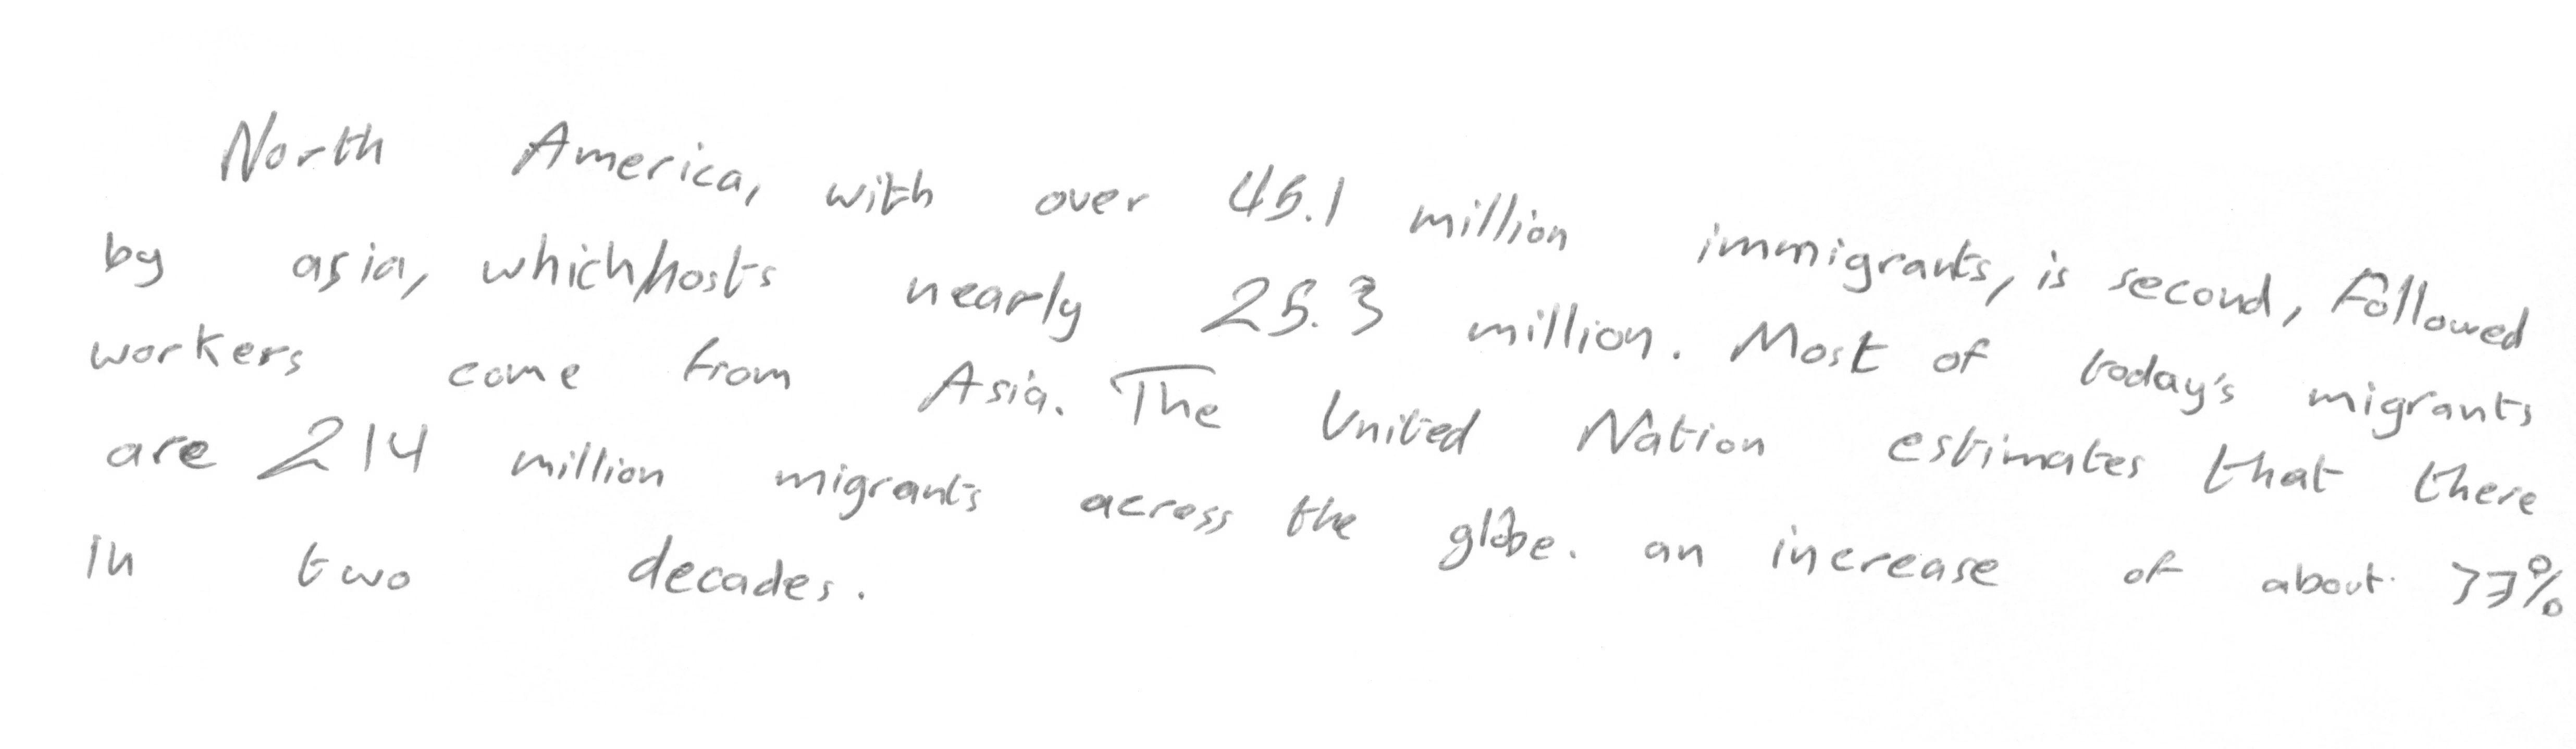 North America, with over 45.1 million immigrants, is second, Followed
by asia, which/hosts nearly 25.3 million. Most of today's migrants
workers come from Asia. The United Nation estimates that there
are 214 million migrants across the globe. an increase of about 37%
In two decades.